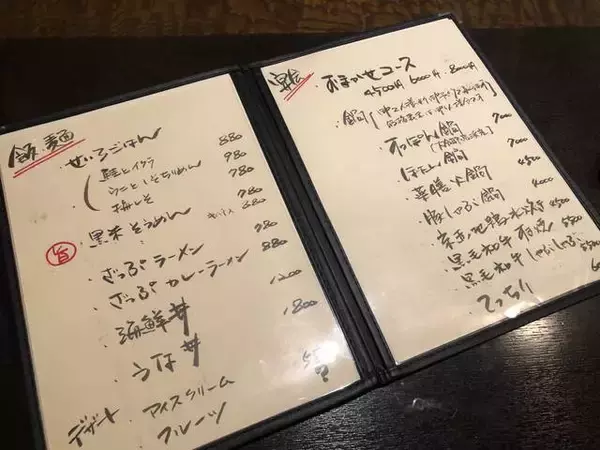 飯・麺
・せいろごはん 880
鮭といくら 980
うにとしそちりめん 980
梅しそ 780
旨
・黒米そうめん 880
・ざっぷラーメン 780
・ざっぷカレーラーメン 880
・海鮮丼 1200
・うな丼 1800
デザート・アイスクリーム
・フルーツ
宴会
おまかせコース
4500円 6000円 8000円
・鍋
すっぽん鍋 7000
ぼたん鍋 7000
・華膳火鍋 4500
・豚しゃぶ鍋 4000
・京赤地鶏水炊き 4500
・黒毛和牛すき焼 5500
・黒毛和牛しゃぶしゃぶ 5500
・てっちり